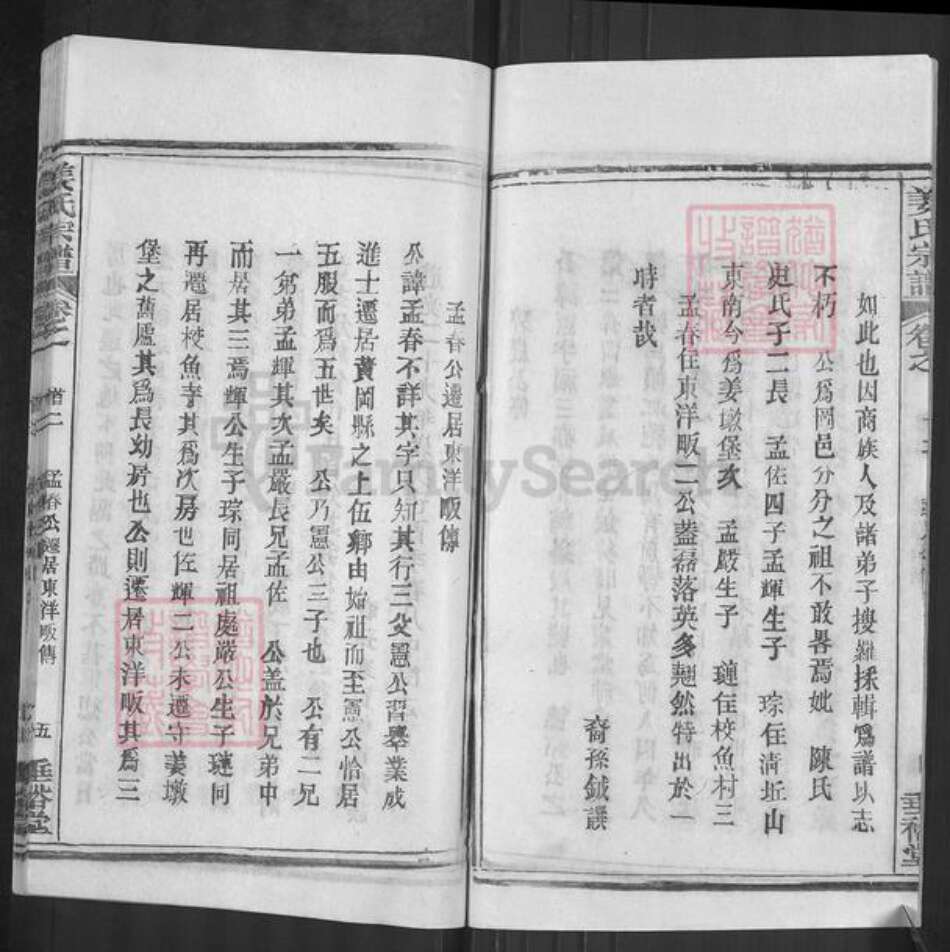 姜氏宗譜
卷之
垂裕堂
如此也因商族人及諸弟子搜羅採輯爲譜以志
不朽 公爲岡邑分分之祖不敢畧焉妣 陳氏
庭氏子二長 孟佐四子孟輝生子 琮住淸坵山
東南今爲姜墩堡次 孟嚴生子 璉住校魚村三
孟春住東洋畈二公葢磊落英多翹然特出於一
時者哉
裔孫鉞譔
孟春公遷居東洋畈傳
公諱孟春不詳其字只知其行三父憲公習舉業成
進士遷居黃岡縣之上伍鄉由始祖而至憲公恰居
五服而爲五世矣 公乃憲公三子也 公有二兄
一弟弟孟輝其次孟嚴長兄孟佐 公盖於兄弟中
而居其三焉輝公生子琮同居祖處嚴公生子璉同
再遷居校魚寺其爲次房也佐輝二公未遷守姜墩
堡之舊廬其爲長幼房也公則遷居東洋畈其爲三
姜氏宗譜
卷之一
孟春公遷居東洋畈傳
五
垂裕堂
FamilySearch